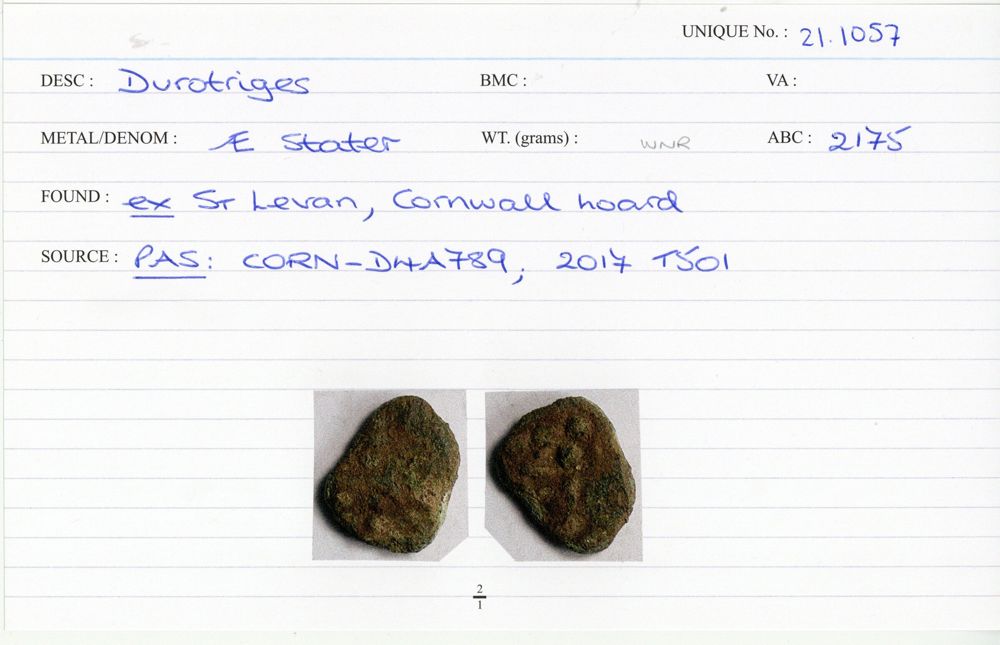 UNIQUE No. : 21.1057
DESC : Durotriges BMC : VA :
METAL/DENOM : Æ Stater WT. (grams) : WNR ABC : 2175
FOUND : ex St Levan, Cornwall hoard
SOURCE : PAS: CORN-D4A789, 2017 T501
2
1